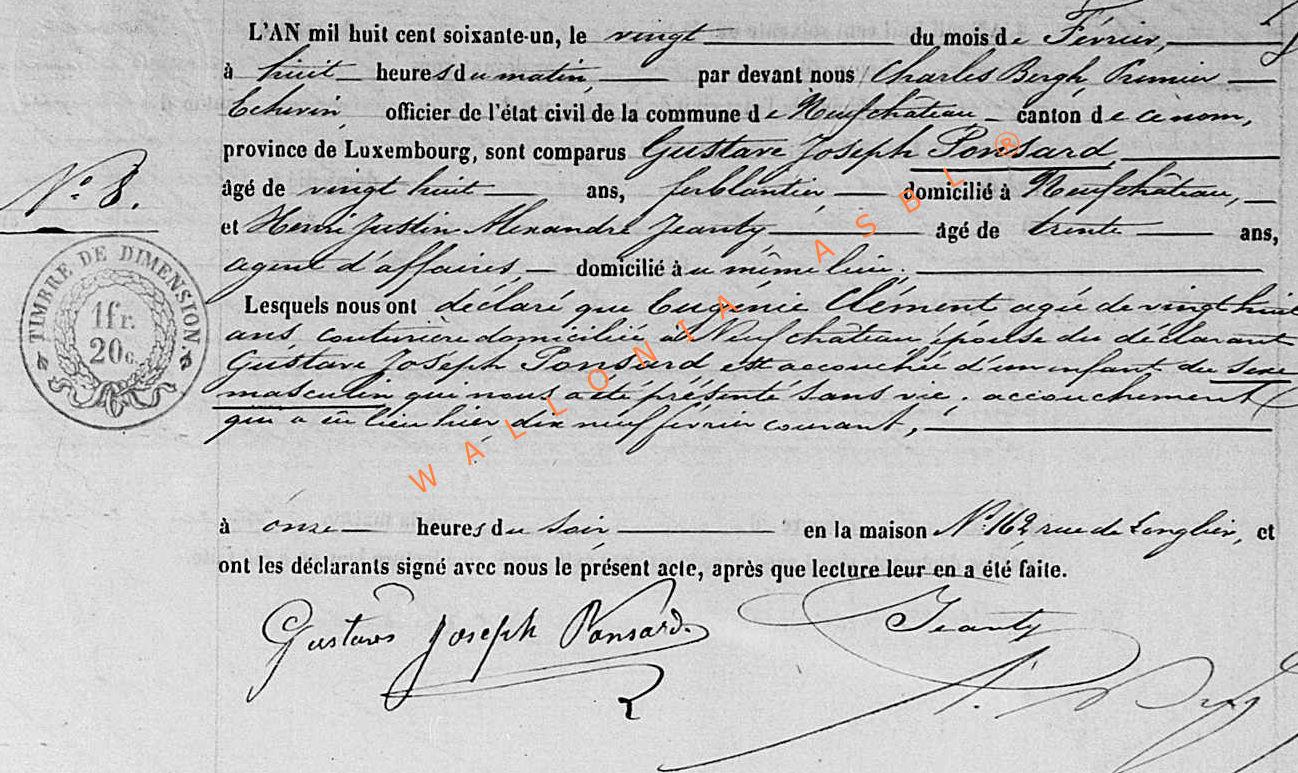 L'AN mil huit cent soixante-un, le vingt du mois de Février,
à huit heures du matin, par devant nous Charles Bergh, Premier
Echevin, officier de l'état civil de la commune de Neufchâteau canton de ce nom,
province de Luxembourg, sont comparus Gustave Joseph Ponsard,
N° 8.
âgé de vingt huit ans, ferblantier, domicilié à Neufchâteau,
et Henri Justin Alexandre Jeanty, âgé de trente ans,
agent d'affaires, domicilié au même lieu.
Lesquels nous ont déclaré que Eugénie Clément agée de vingt huit
ans, couturière domiciliée à Neufchâteau, épouse du déclarant
Gustave Joseph Ponsard est accouchée d'un enfant du sexe
masculin qui nous a été présenté sans vie, accouchement
qui a eu lieu hier dix neuf février courant,
à onze heures du soir, en la maison N° 162 rue de Longlier, et
ont les déclarants signé avec nous le présent acte, après que lecture leur en a été faite.
Gustave Joseph Ponsard
Jeanty
TIMBRE DE DIMENSION
1 fr.
20 c.
WALLONIA ASBL ®